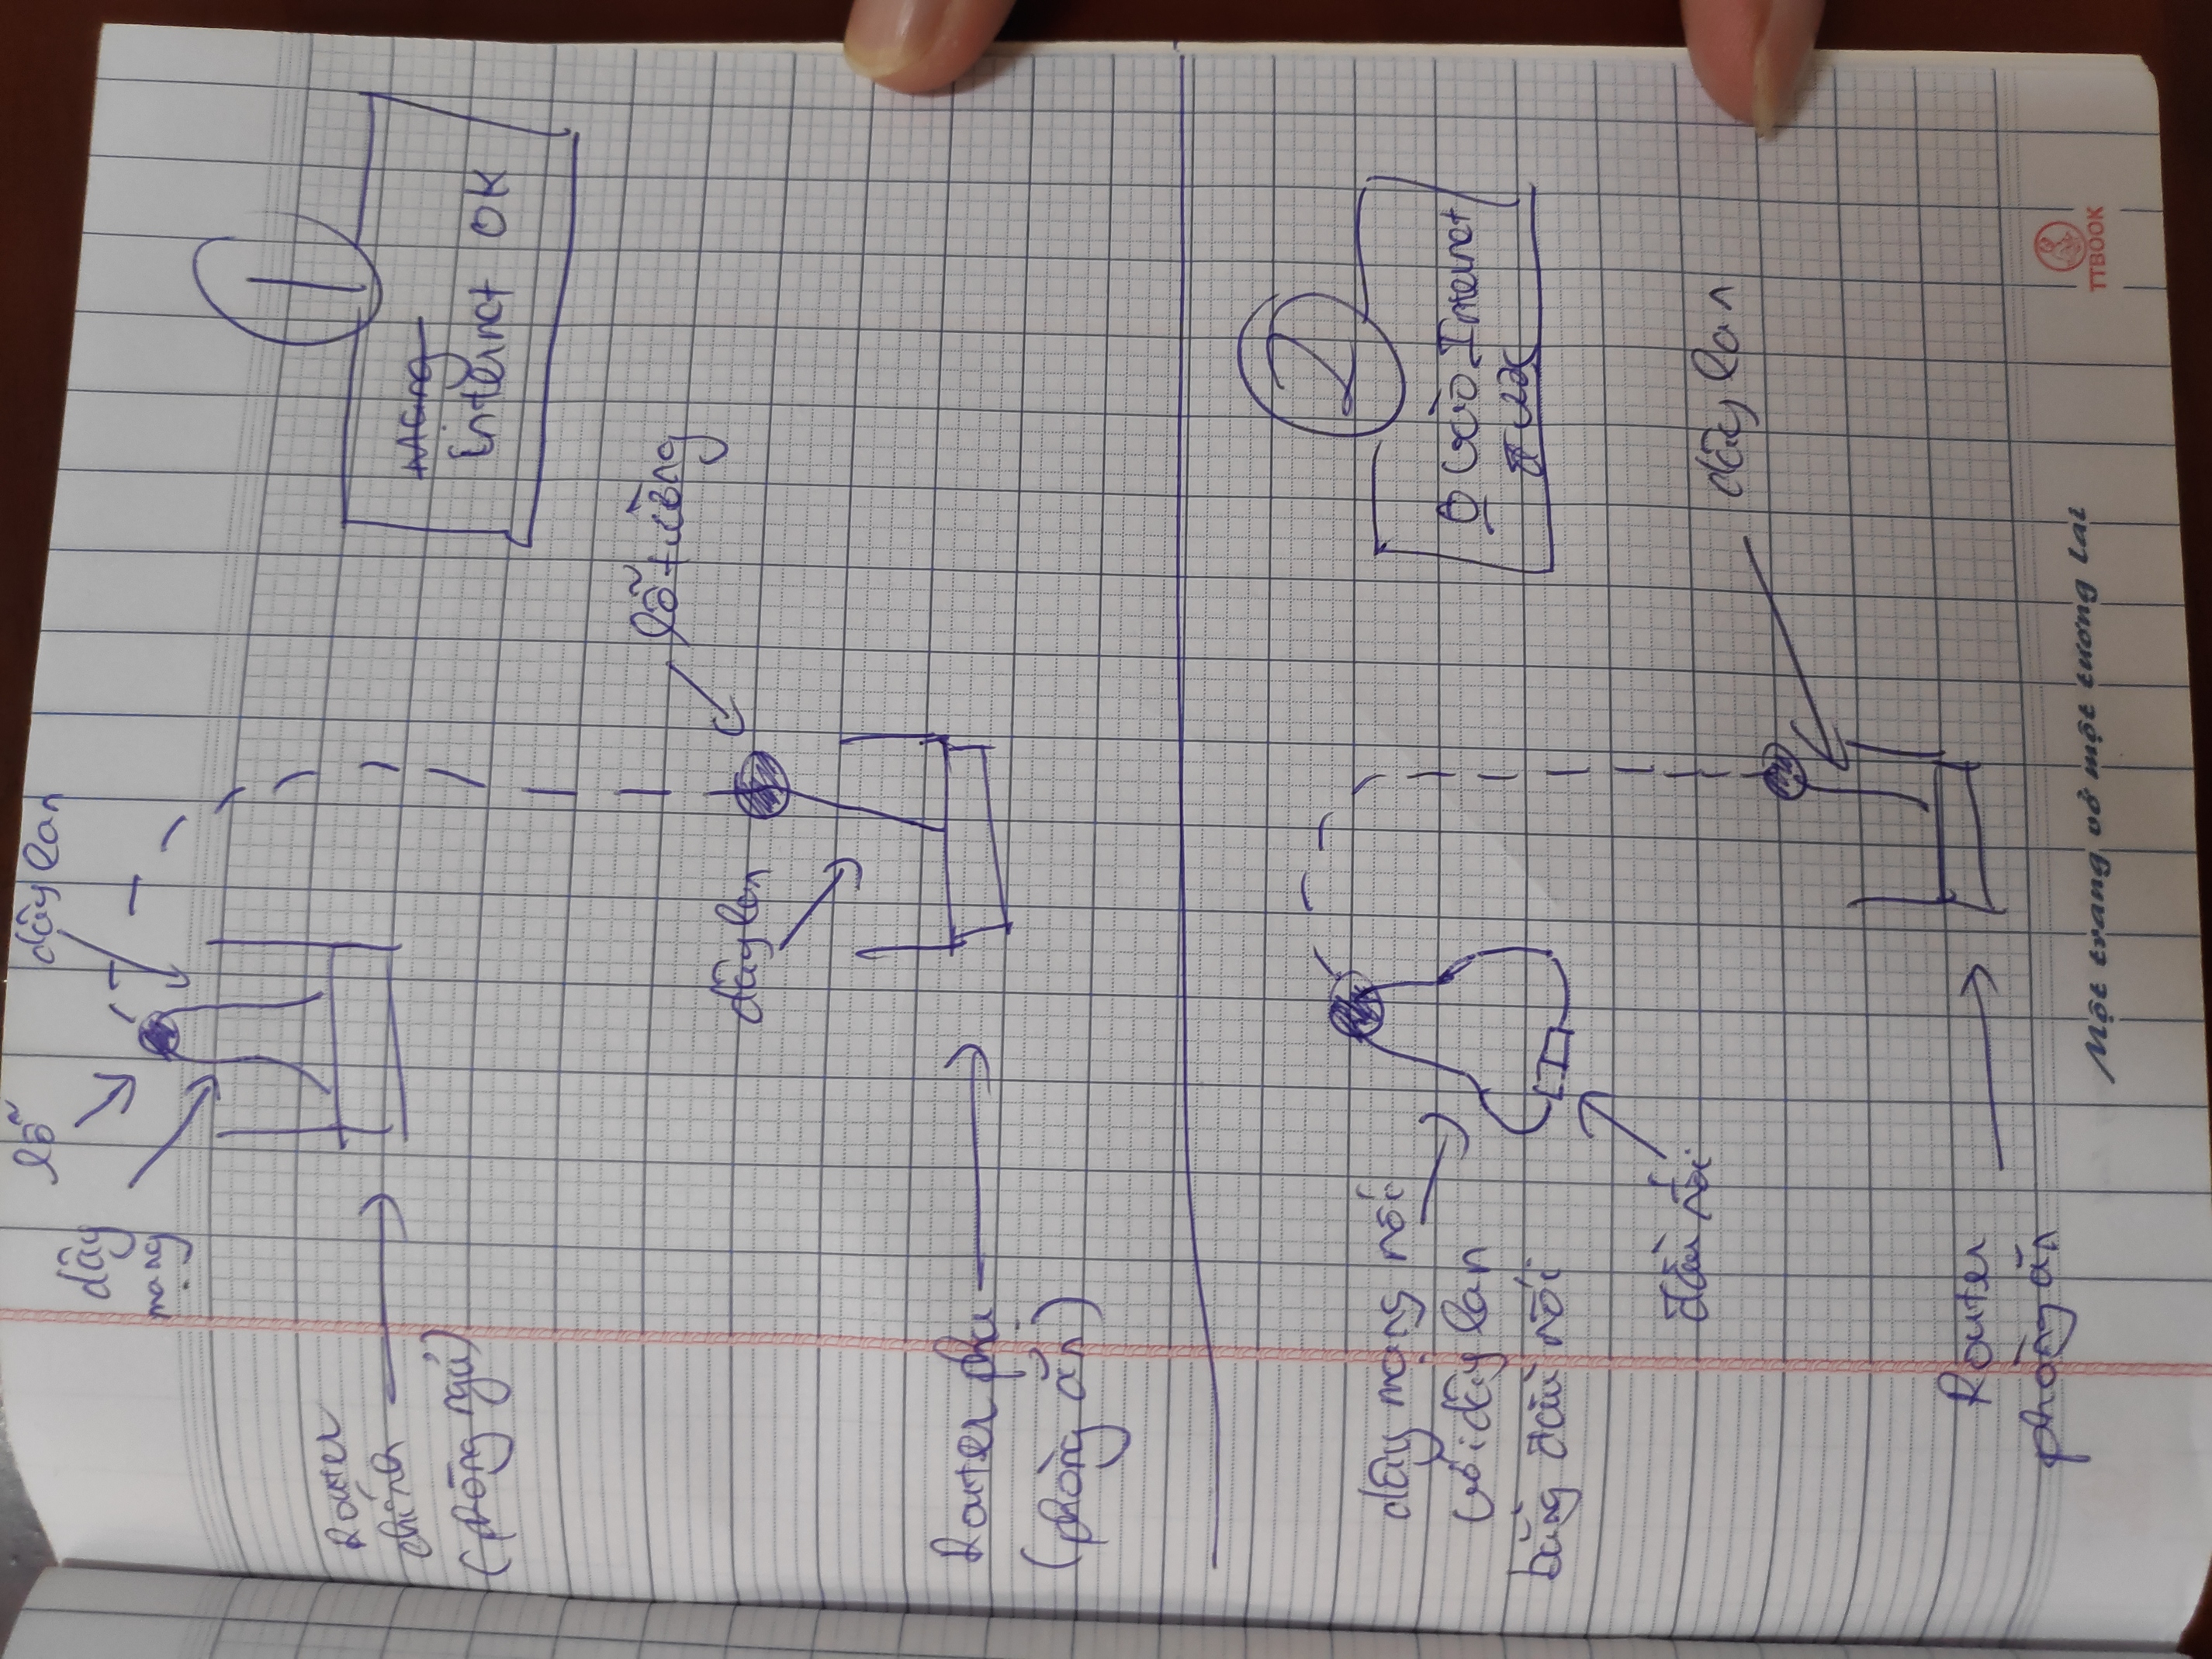 1
mạng
internet OK
dây lan
lỗ
dây
mạng
Router
chính
(phòng ngủ)
lỗ tường
dây lan
Router phụ
(phòng ăn)
2
0 vào Internet
dây lan
dây mạng nối
với dây lan
bằng đầu nối
đầu nối
Router
phòng ăn
Một trang vở một tương lai
TTBOOK